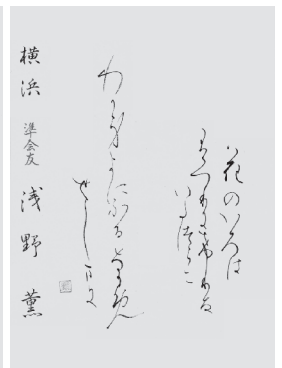 花のいろは
うつりにけりな
いたつらに
わか身よにふるなかめ
せしまに
横浜 準会友 浅野 薫